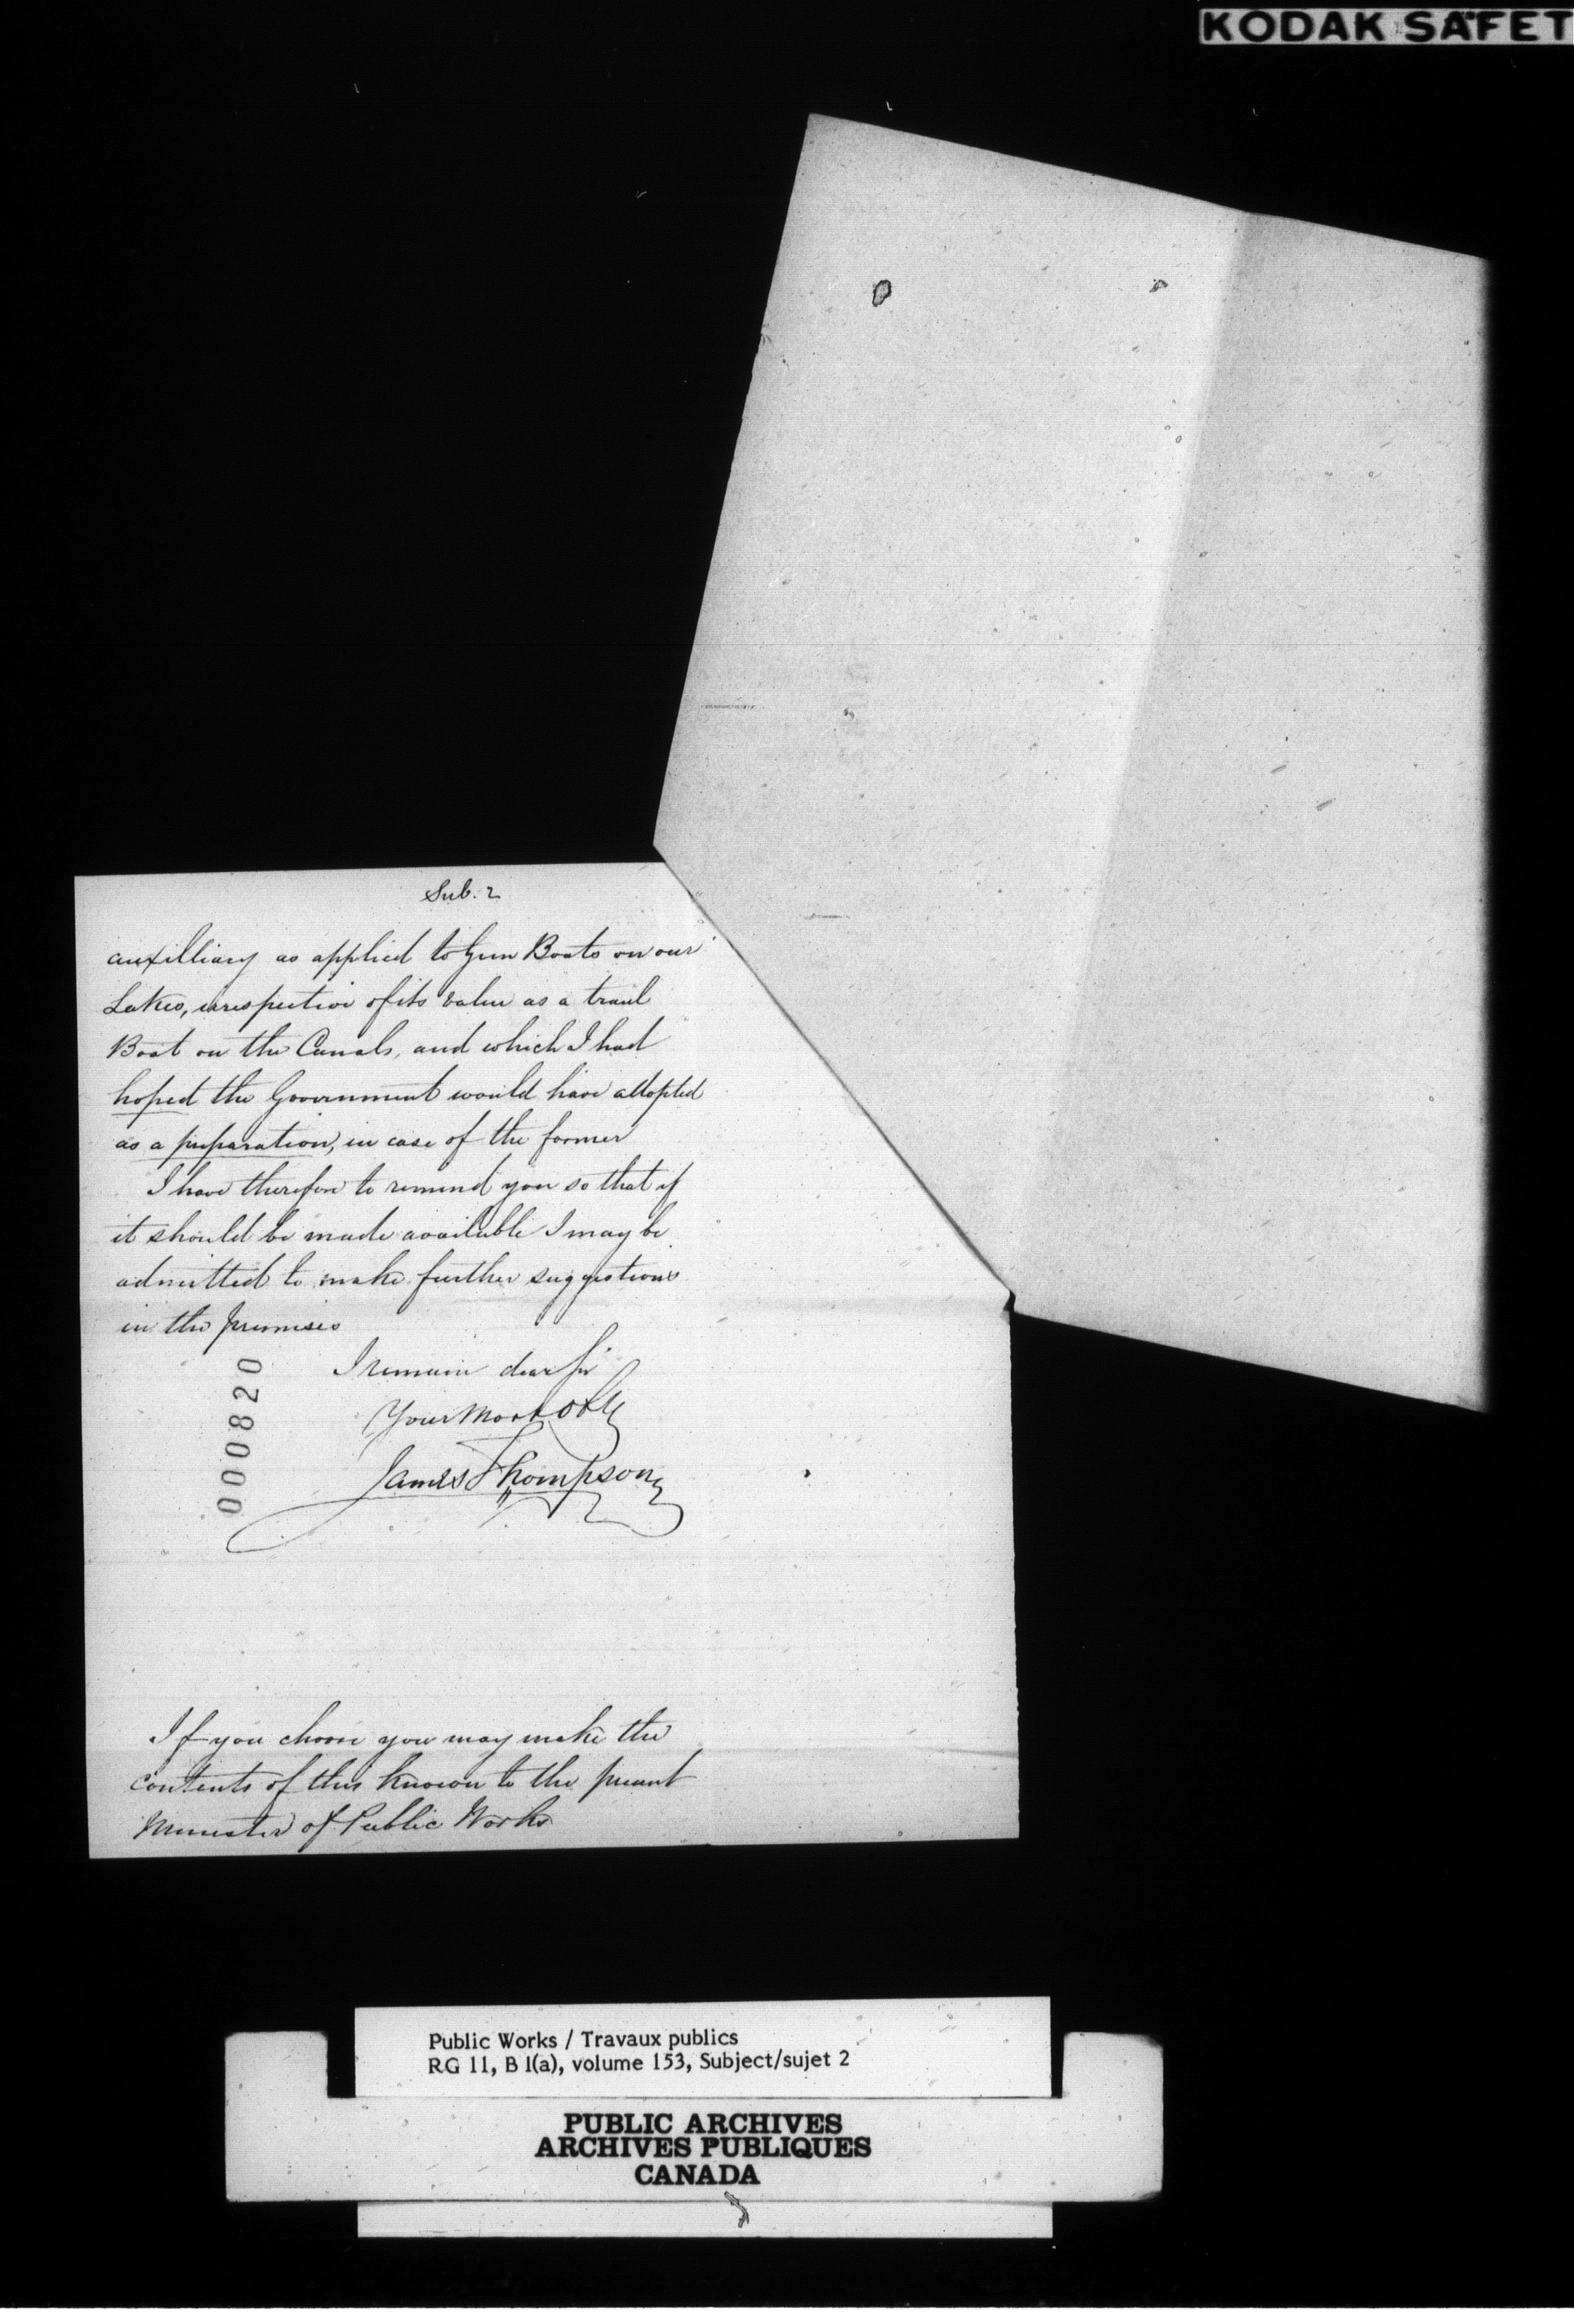 KODAK SAFET
Sub. 2
auxilliary as applied to Gun Boats on our
Lakes, irrespective of its value as a
Boat on the Canals, and which I had
hoped the Government would have adopted
as a preparation, in case of the former
I have therefore to remind you so that if
it should be made available I may be
admitted to make further suggestions
in the premises
I remain dear Sir
Your Most
James Thompson
000820
If you choose you may make the
contents of this known to the present
Minister of Public Works
Public Works / Travaux publics
RG 11, B 1(a), volume 153, Subject/sujet 2
PUBLIC ARCHIVES
ARCHIVES PUBLIQUES
CANADA